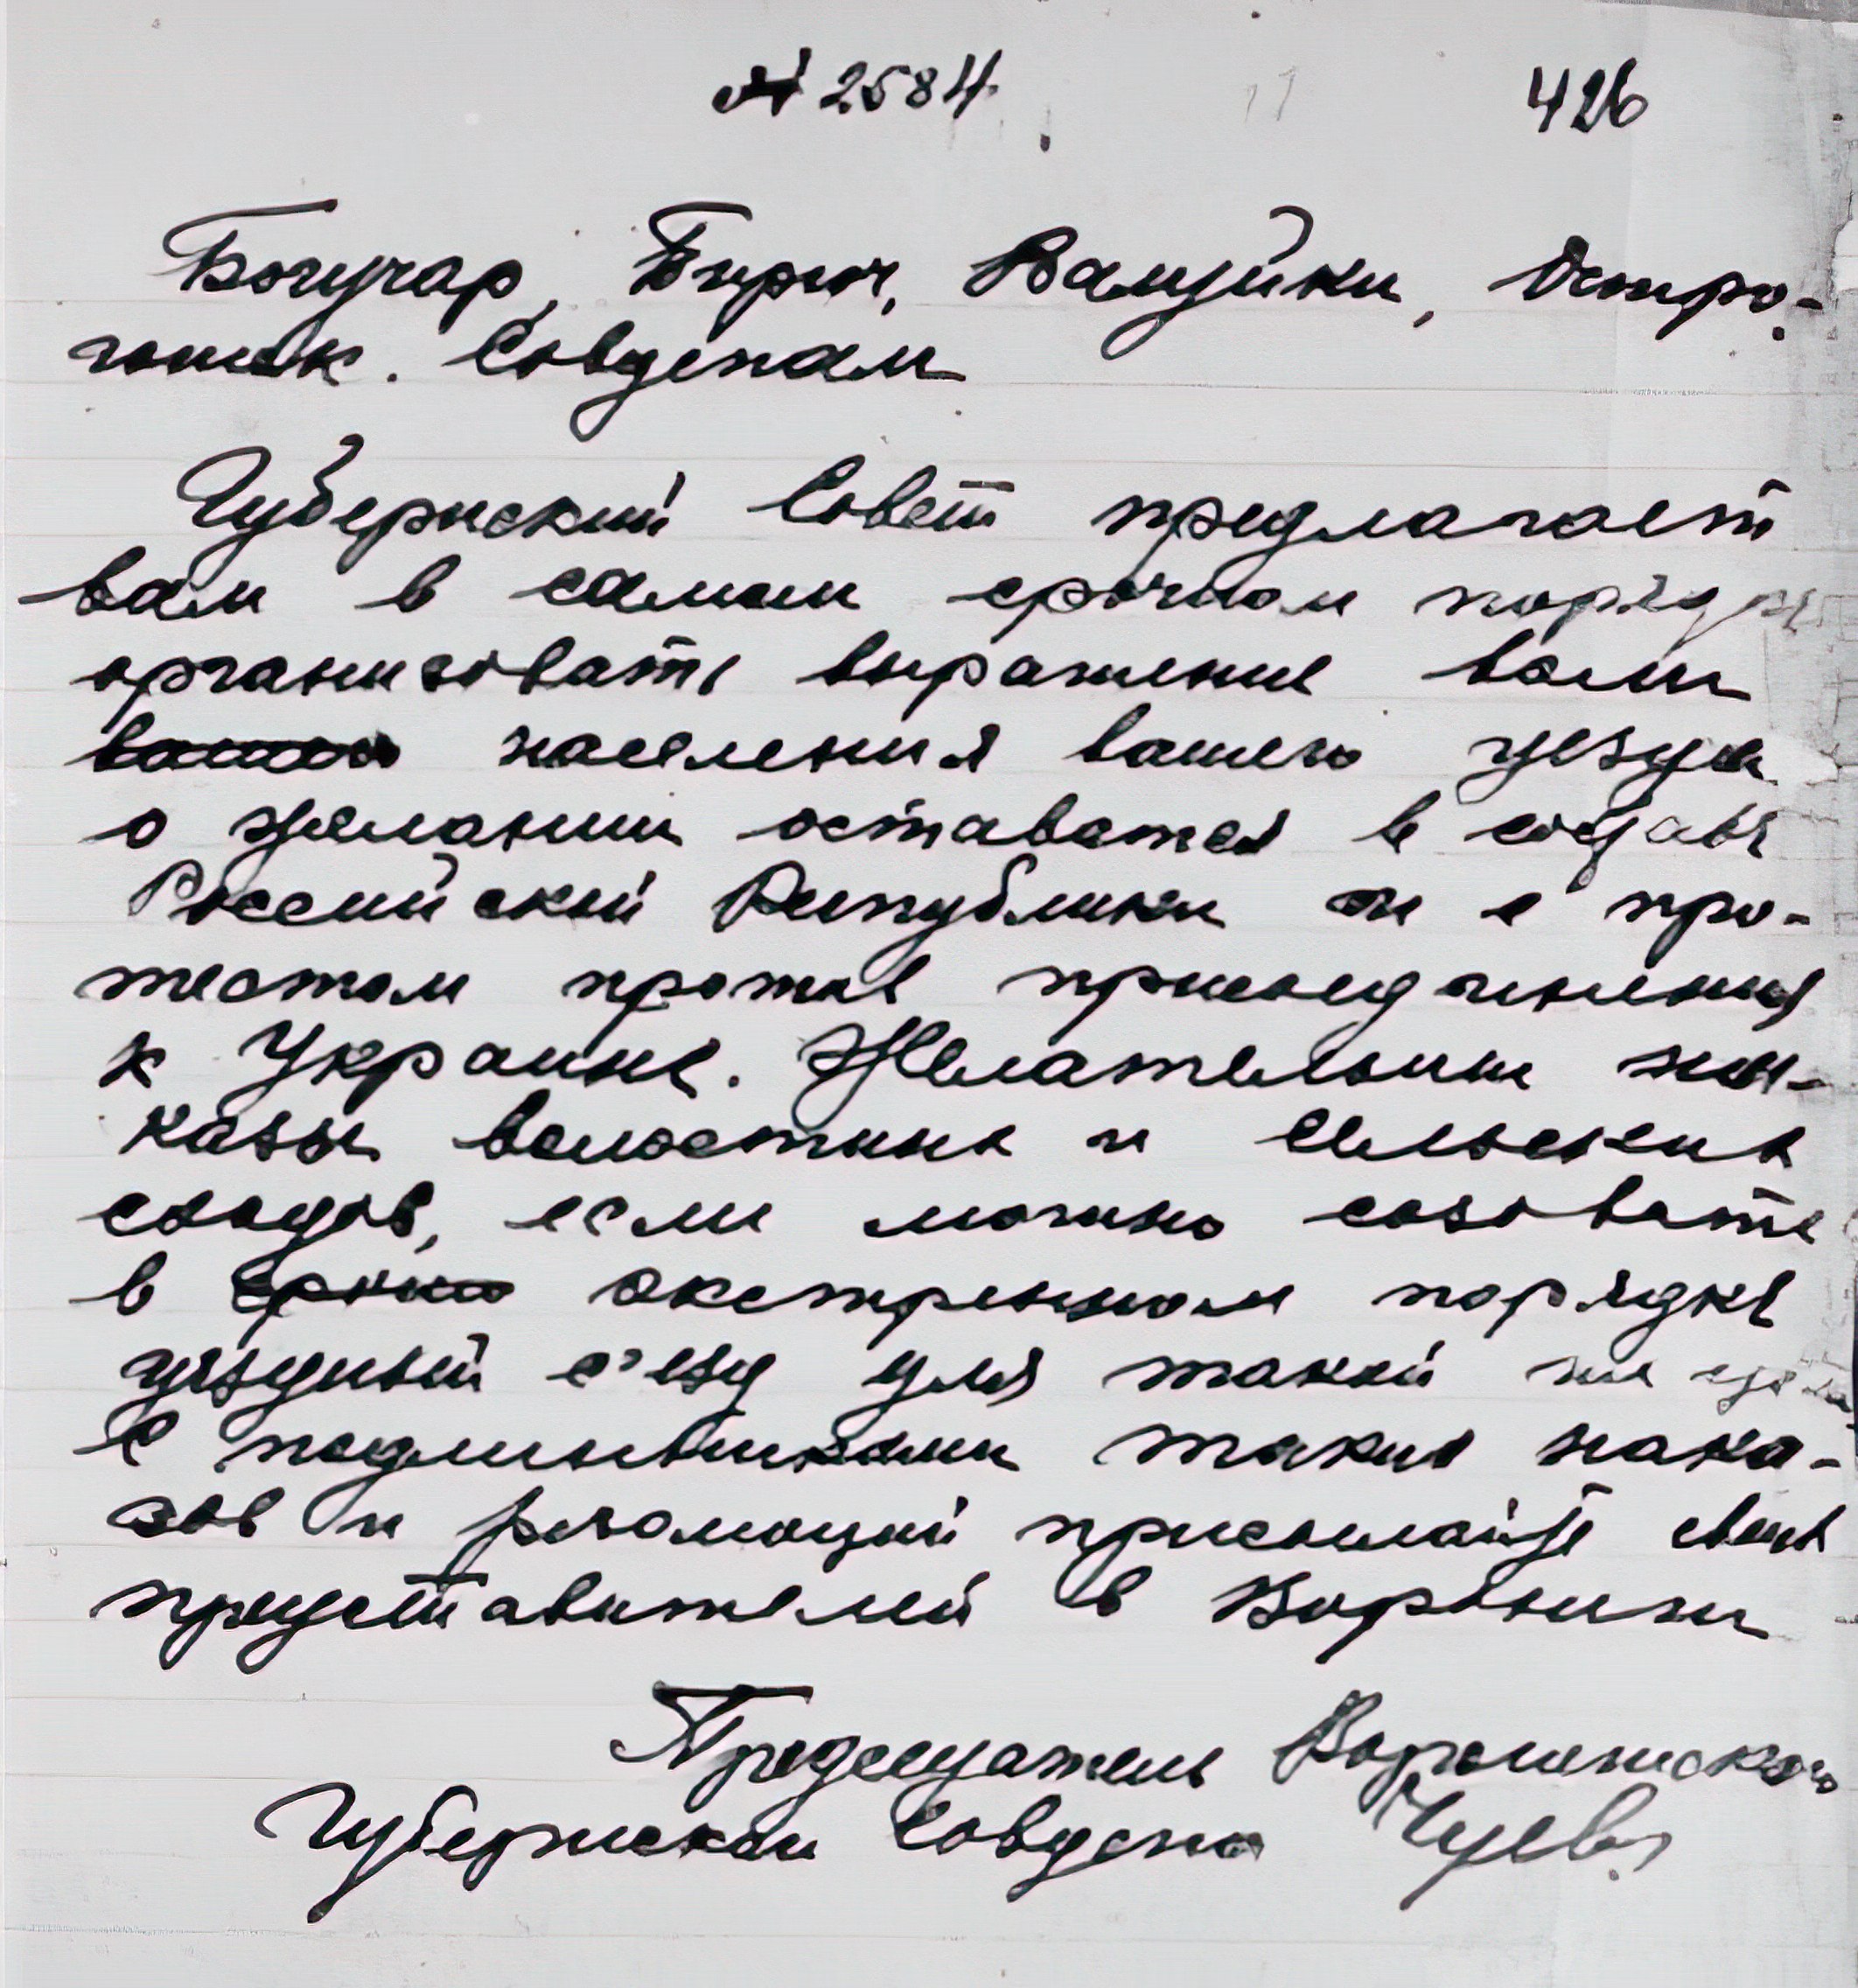 № 2584 426
Богучар, Бирюч, Валуйки, Остро-
гожск. Совдепам
Губернский Совет предлагает
вам в самом срочном порядке
организовать выражение воли
населения вашего уезда
о желании оставаться в составе
Российской Республики и с про-
тестом против присоединения
к Украине. Желательны на-
казы волостных и сельских
сходов, если можно созовите
в экстренном порядке
уездный с'езд для такой же
С подлинниками таких нака-
зов и резолюций присылайте своих
представителей в Воронеж
Председатель Воронежского
Губернской Совдепа Чуев